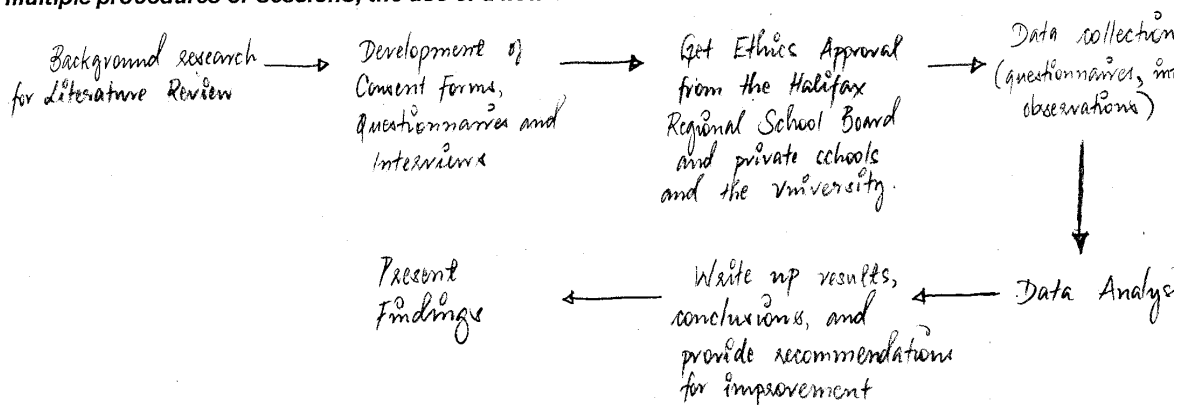 multiple procedures or sessions, the use of a
Background research
for Literature Review
Development of
Consent Forms,
Questionnaires and
Interviews
Get Ethics Approval
from the Halifax
Regional School Board
and private schools
and the University.
Data collection
(questionnaires, in
observations)
Data Analys
Write up results,
conclusions, and
provide recommendations
for improvement
Present
Findings